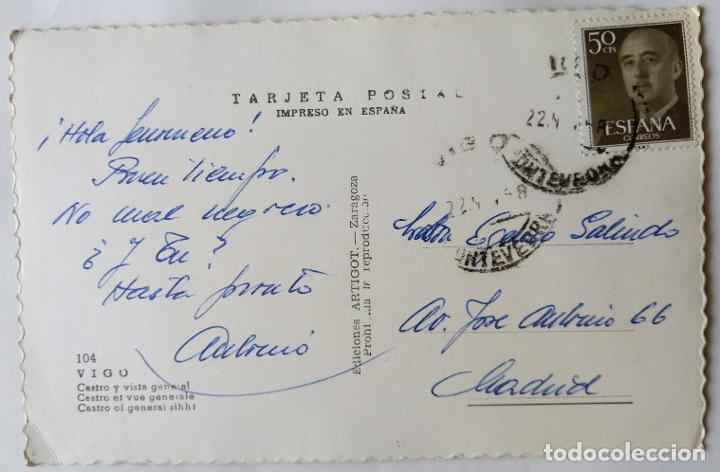 TARJETA POSTAL
IMPRESO EN ESPAÑA
¡Hola fenomeno!
Buen tiempo.
No mal negocio.
¿Y Tu?
Hasta pronto
Antonio
104
VIGO
Castro y vista general
Castro et vue generale
Castro ol general sihht
Ediciones ARTIGOT.—Zaragoza
Prohi da la reproducción
50
CTS
ESPAÑA
CORREOS
VIGO
22.
PONTEVEDRA
VIGO
22. 58
PONTEVEDRA
Salindo
Av. Jose Antonio 66
Madrid
todocoleccion